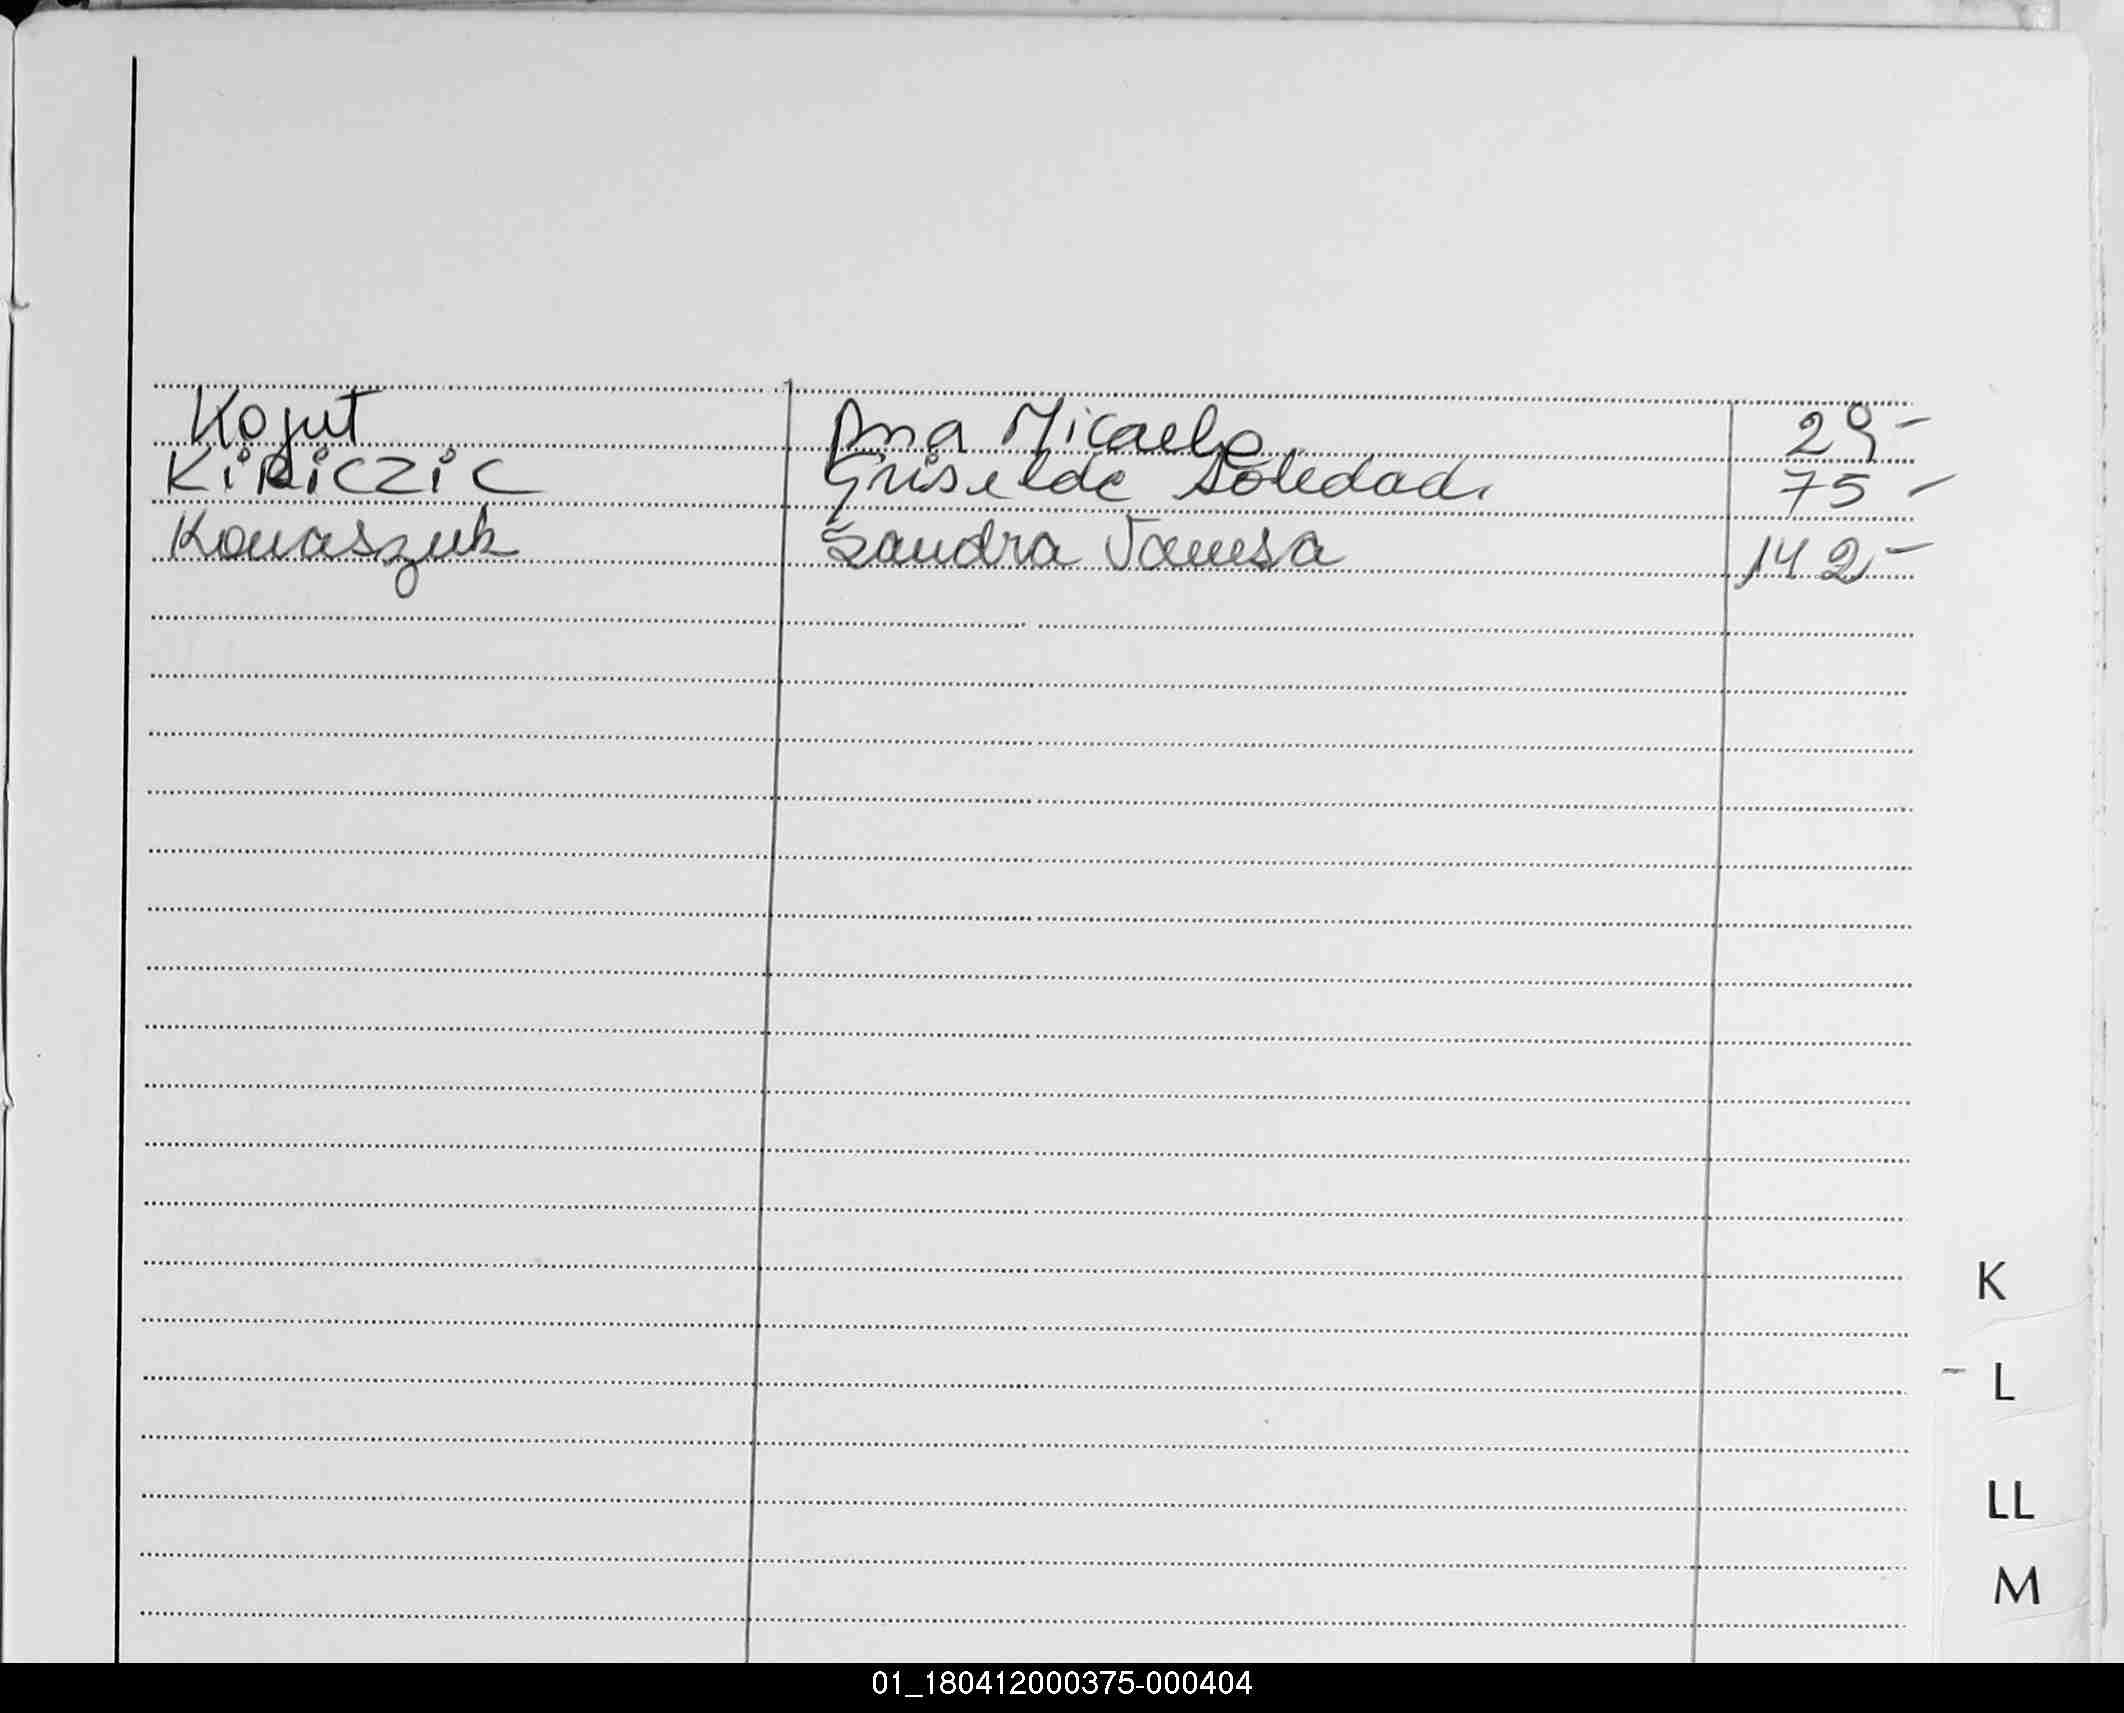 Kojut Ana Micaela 29-
Kiriczic Griselda Soledad. 75-
Konaszuk Sandra Vanesa 142-
K
- L
LL
M
01_180412000375-000404